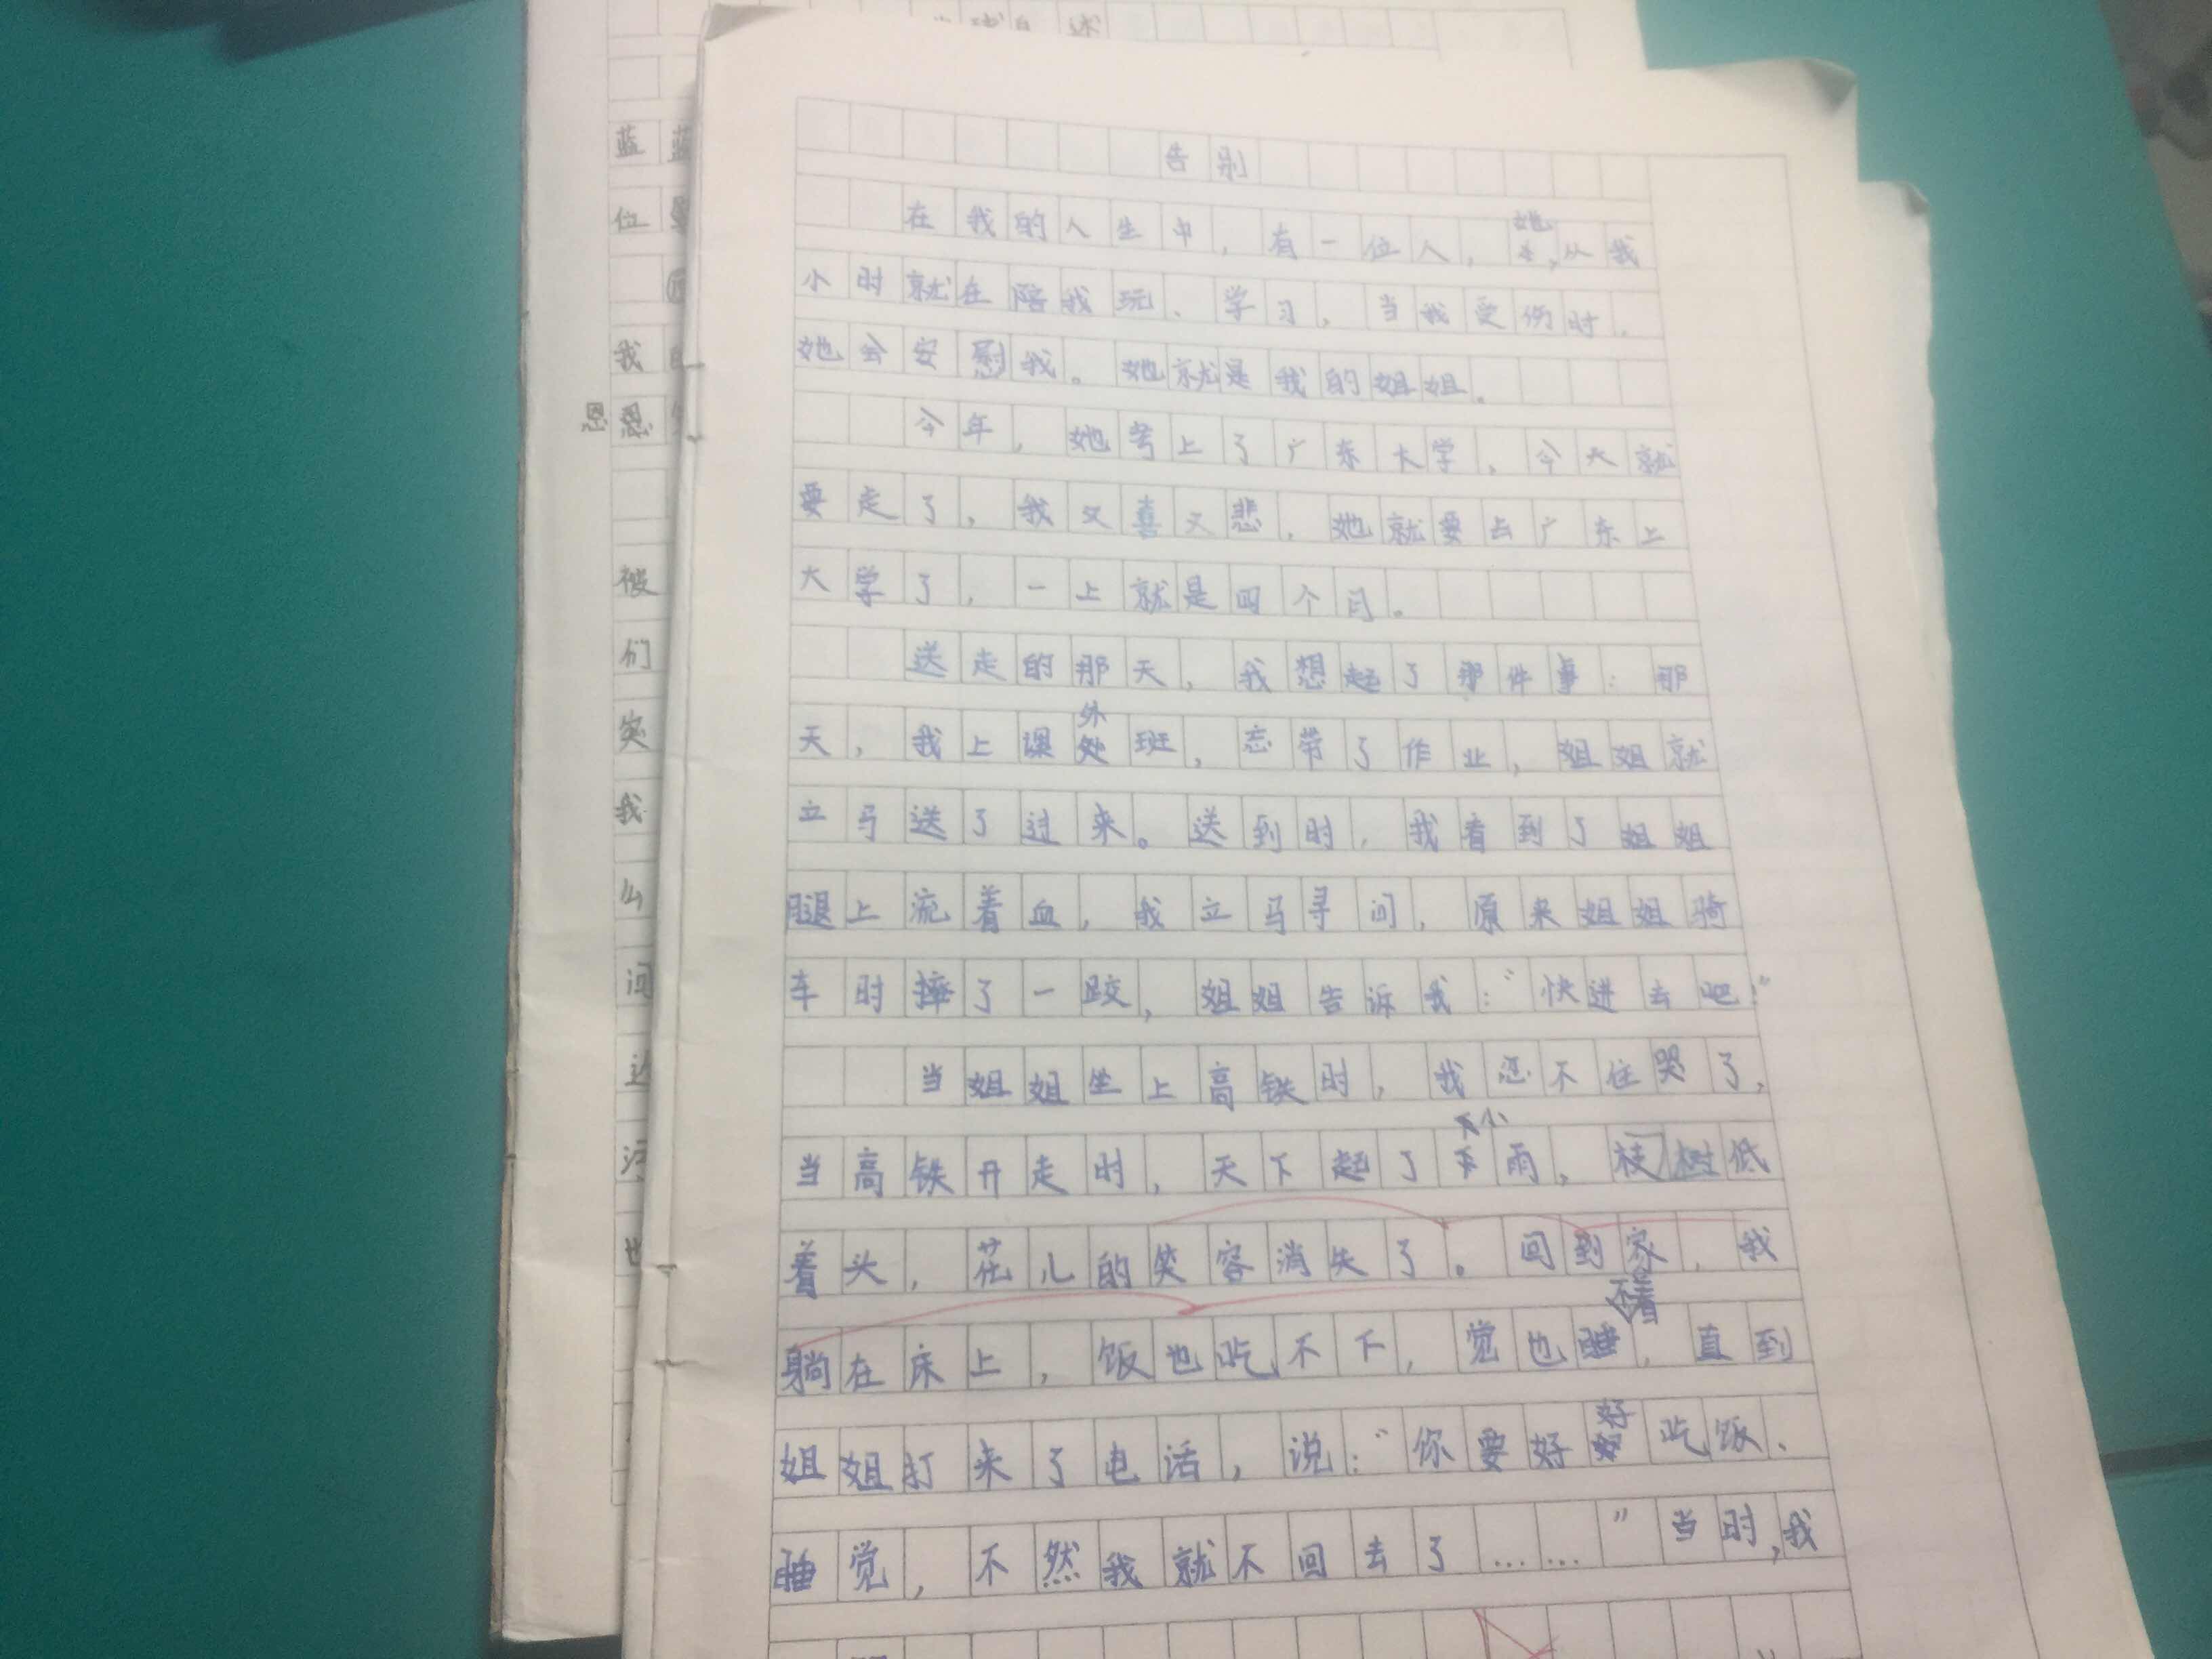 告别
在我的人生中，有一位人，她，从我
小时就在陪我玩、学习，当我受伤时，
她会安慰我。她就是我的姐姐。
今年，她考上了广东大学，今天就
要走了，我又喜又悲，她就要去广东上
大学了，一上就是四个月。
送走的那天，我想起了那件事：那
天，我上课外班，忘带了作业，姐姐就
立马送了过来。送到时，我看到了姐姐
腿上流着血，我立马寻问，原来姐姐骑
车时摔了一跤，姐姐告诉我：“快进去吧！”
当姐姐坐上高铁时，我忍不住哭了，
当高铁开走时，天下起了小雨，树低
着头，花儿的笑容消失了。回到家，我
躺在床上，饭也吃不下，觉也睡不着，直到
姐姐打来了电话，说：“你要好好吃饭、
睡觉，不然我就不回去了……”当时，我
蓝
位
我
恩
被
们
突
我
么
问